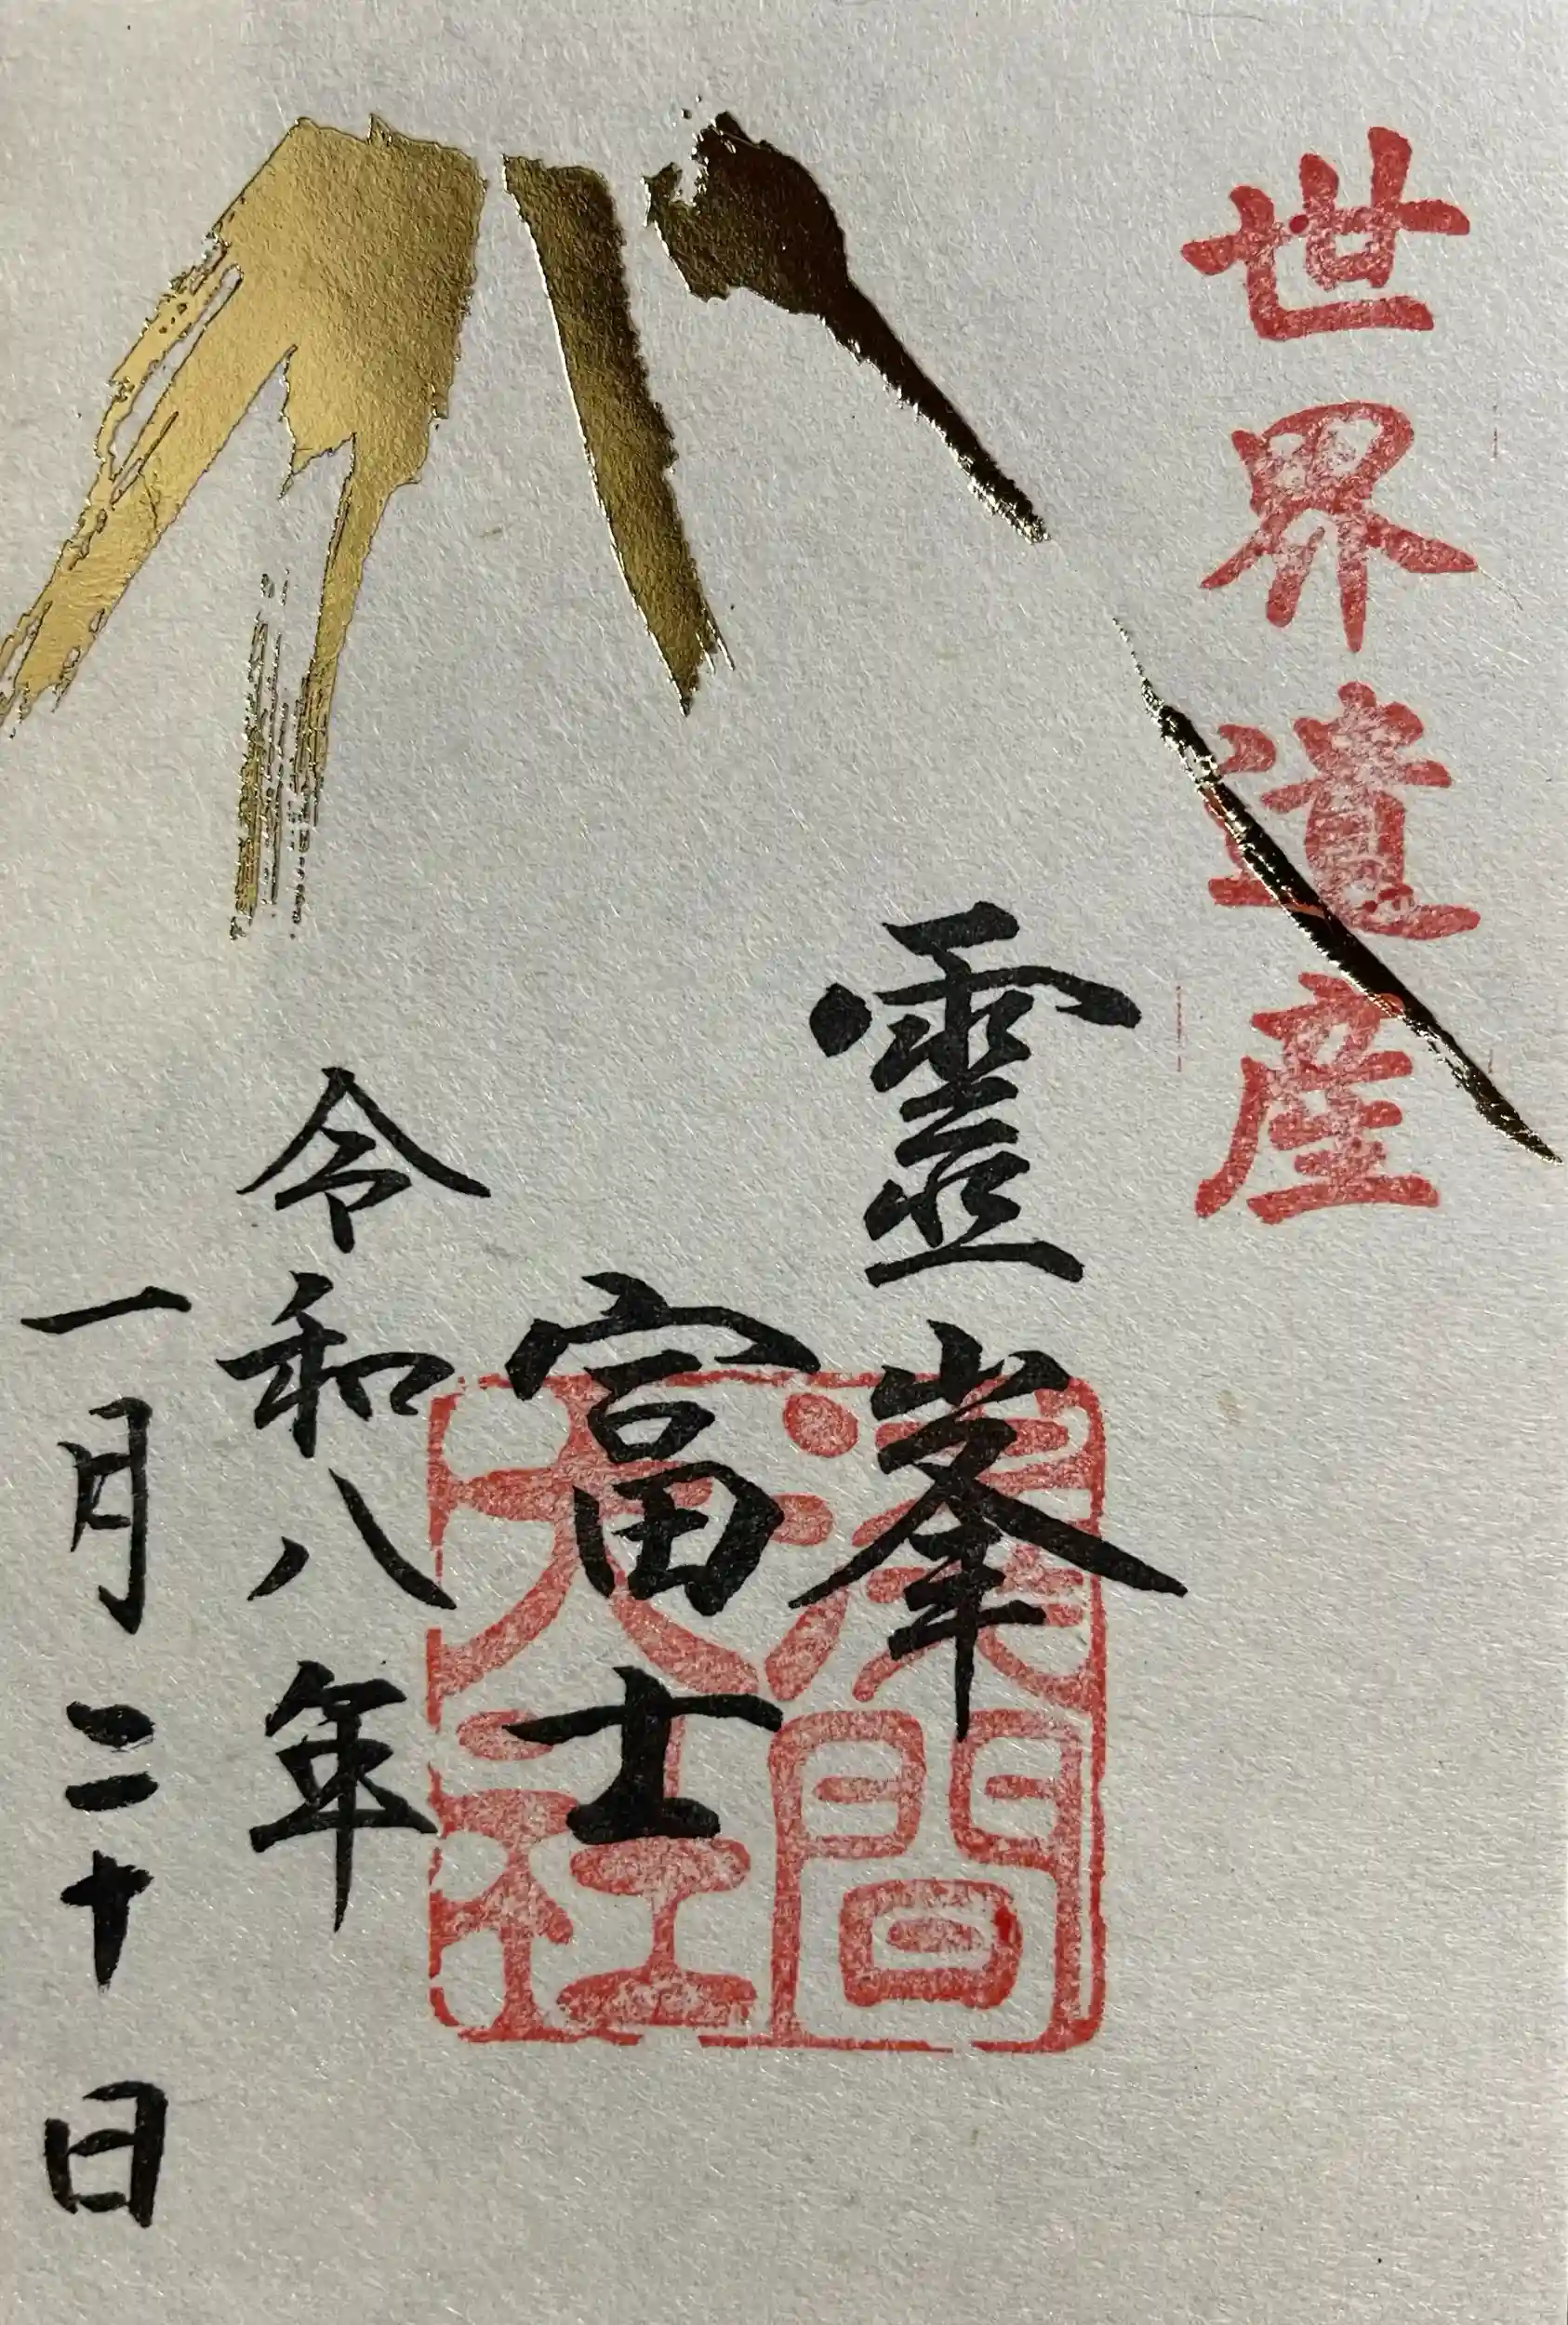 世界遺産
靈峯
富士
令和八年
一月二十日
淺間
大社